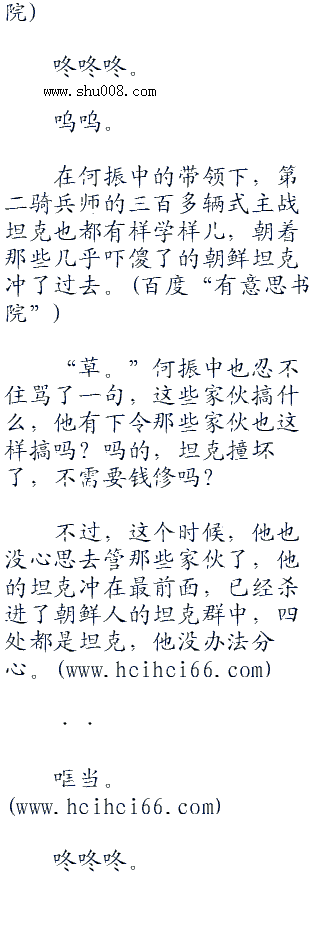 院)
咚咚咚。
www.shu008.com
呜呜。
在何振中的带领下，第
二骑兵师的三百多辆式主战
坦克也都有样学样儿，朝着
那些几乎吓傻了的朝鲜坦克
冲了过去。(百度“有意思书
院”)
“草。”何振中也忍不
住骂了一句，这些家伙搞什
么，他有下令那些家伙也这
样搞吗？吗的，坦克撞坏
了，不需要钱修吗？
不过，这个时候，他也
没心思去管那些家伙了，他
的坦克冲在最前面，已经杀
进了朝鲜人的坦克群中，四
处都是坦克，他没办法分
心。(www.hcihci66.com)
．．
哐当。
(www.hcihci66.com)
咚咚咚。